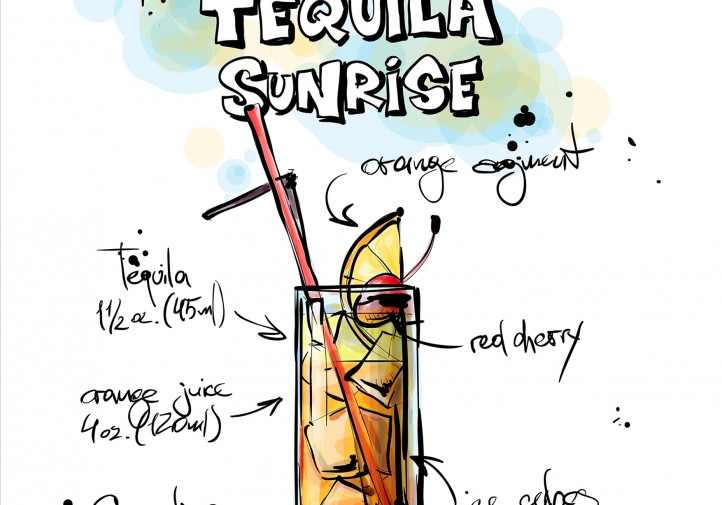 TEQUILA
SUNRISE
orange segment
Tequila
1 1/2 oz. (45ml)
red cherry
orange juice
4oz. (120ml)